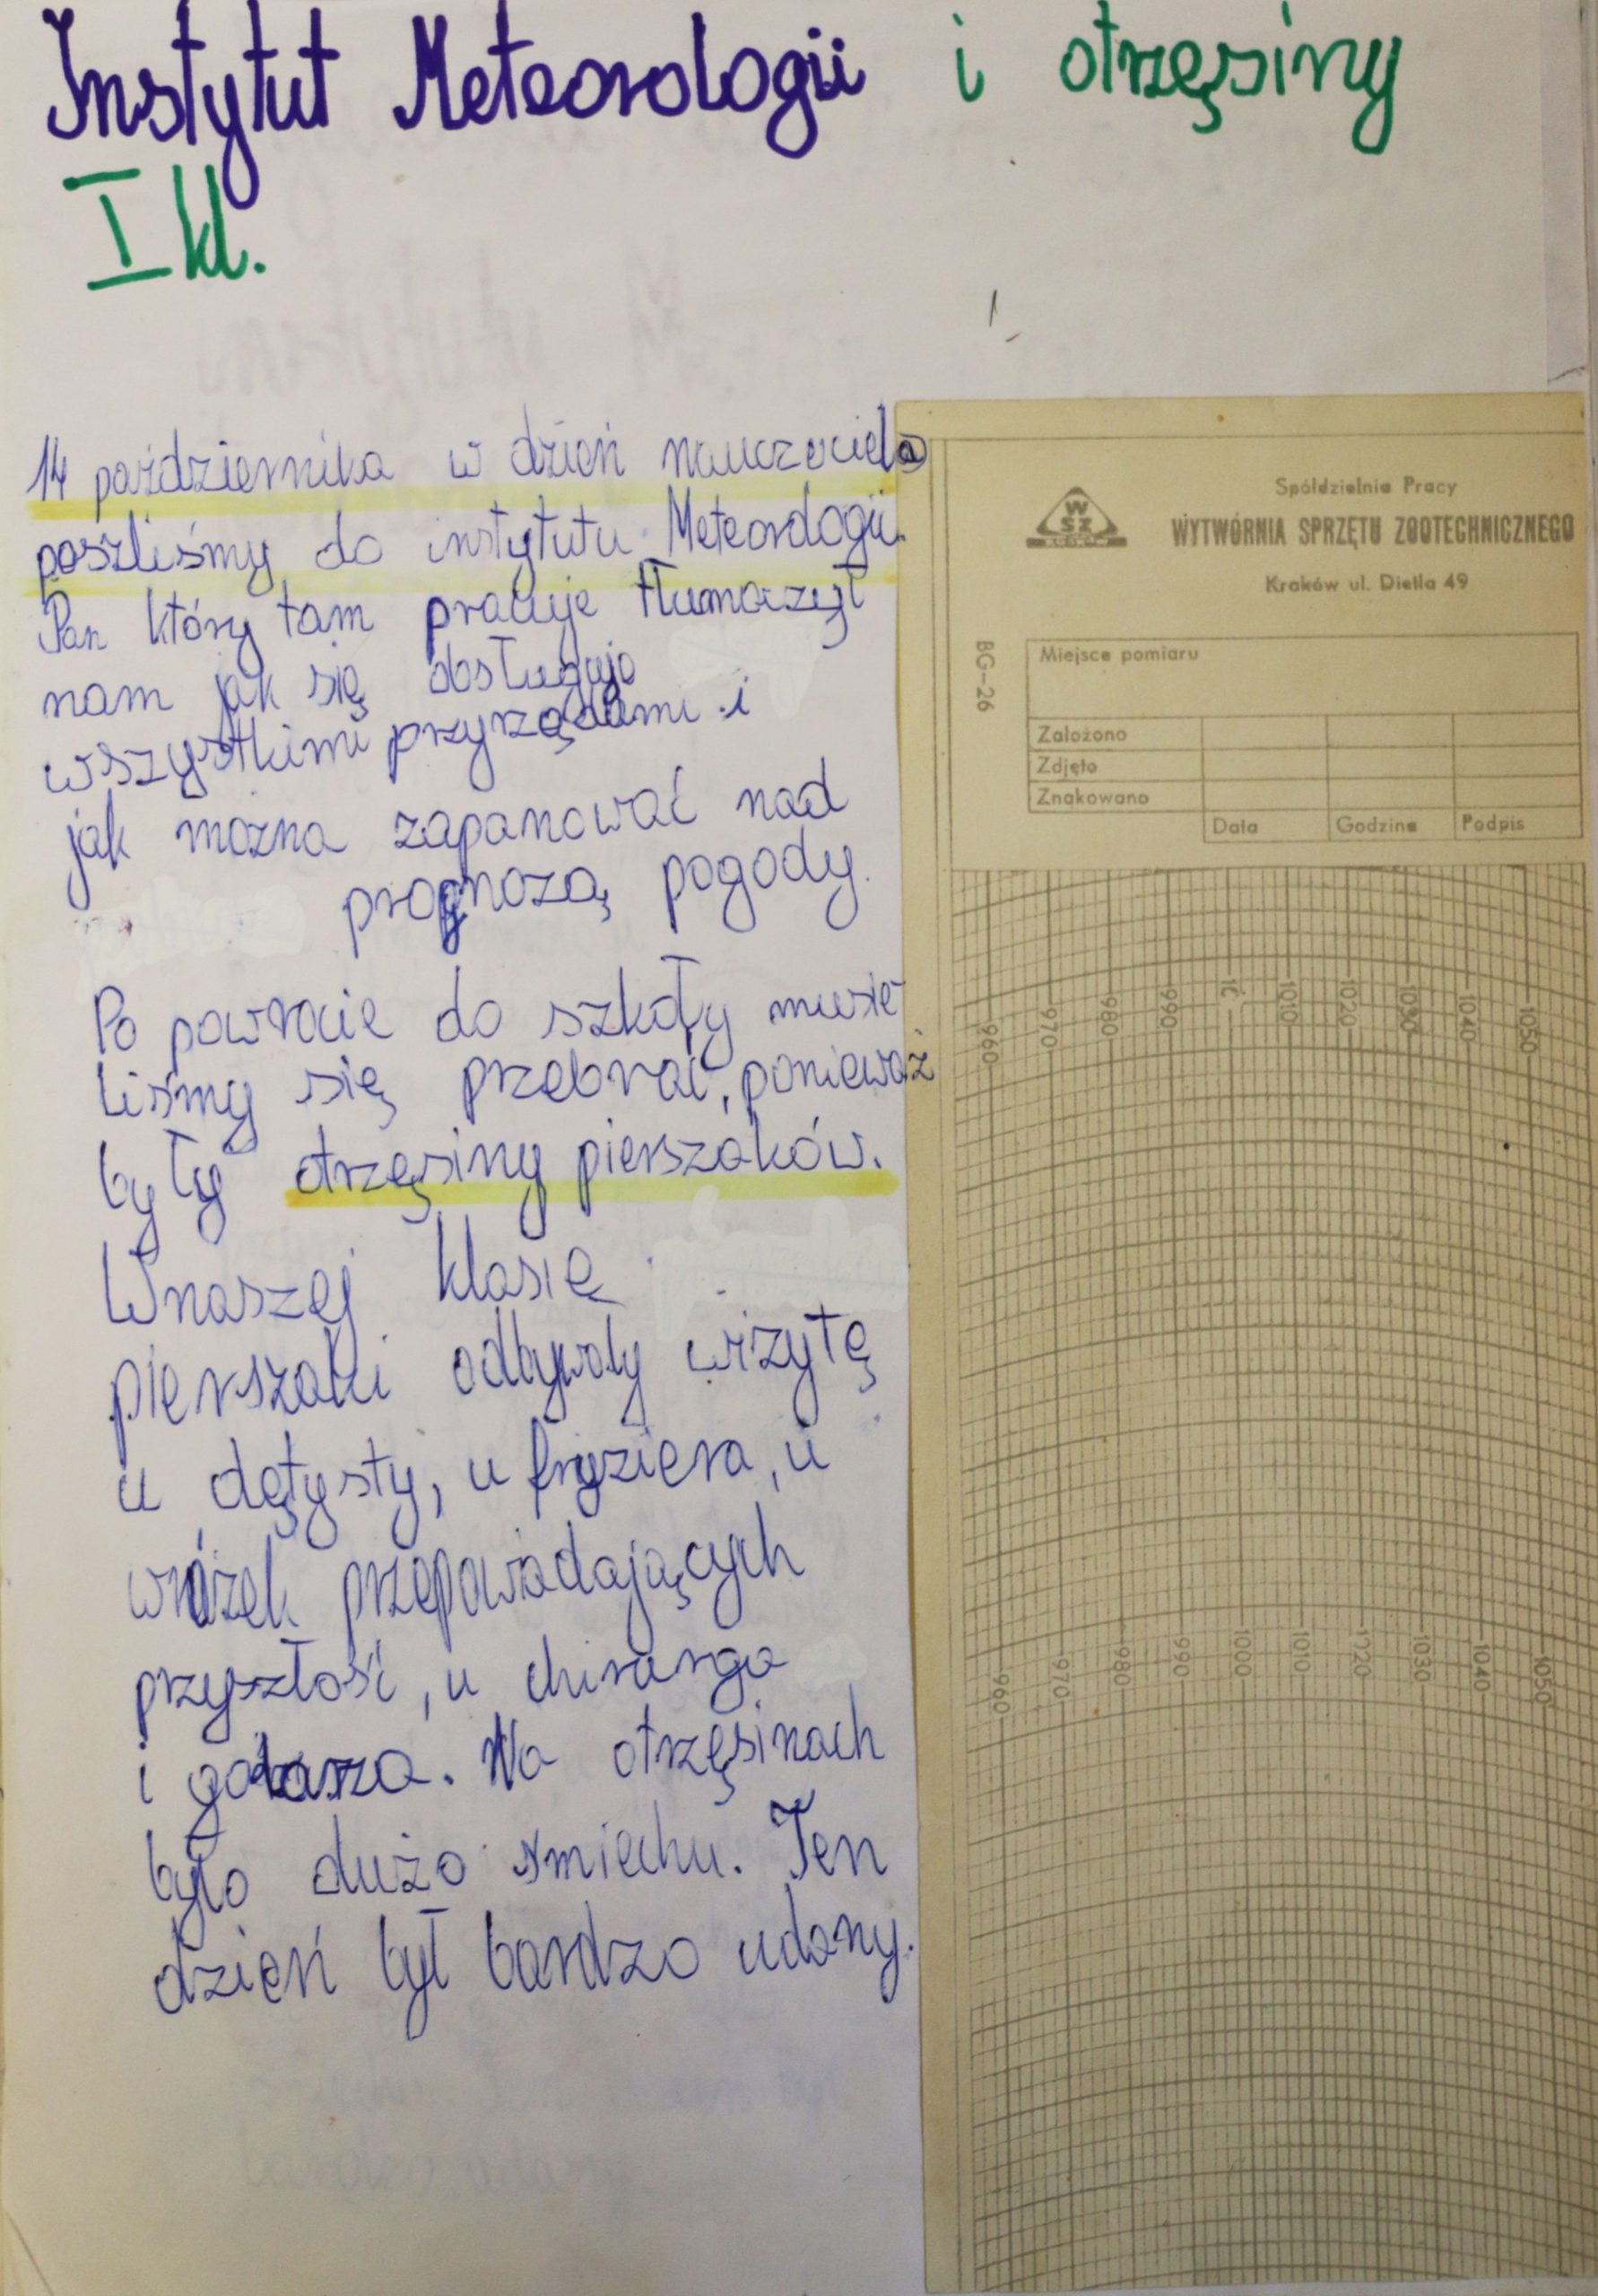 Instytut Meteorologii i otrzęsiny
I kl.
14 października w dzień nauczyciela
poszliśmy do instytutu Meteorologii.
Pan który tam pracuje tłumaczył
nam jak się obsługuje
wszystkimi przyrządami i
jak można zapanować nad
prognozą pogody.
Po powrocie do szkoły musie
liśmy się przebrać, ponieważ
były otrzęsiny pierszaków.
Wnaszej klasie
pierszaki odbywały wizytę
u dętysty, u fryziera, u
wróżek przepowiadających
przyszłość, u chirurga
i . Na otrzęsinach
było dużo śmiechu. Ten
dzień był bardzo udany.
Spółdzielnia Pracy
WSZ
WYTWÓRNIA SPRZĘTU ZOOTECHNICZNEGO
Kraków ul. Dietla 49
BG-26
Miejsce pomiaru
Założono
Zdjęto
Znakowano
Data Godzina Podpis
960 970 980 990 1010 1020 1030 1040 1050
960 970 980 990 1000 1010 1020 1030 1040 1050